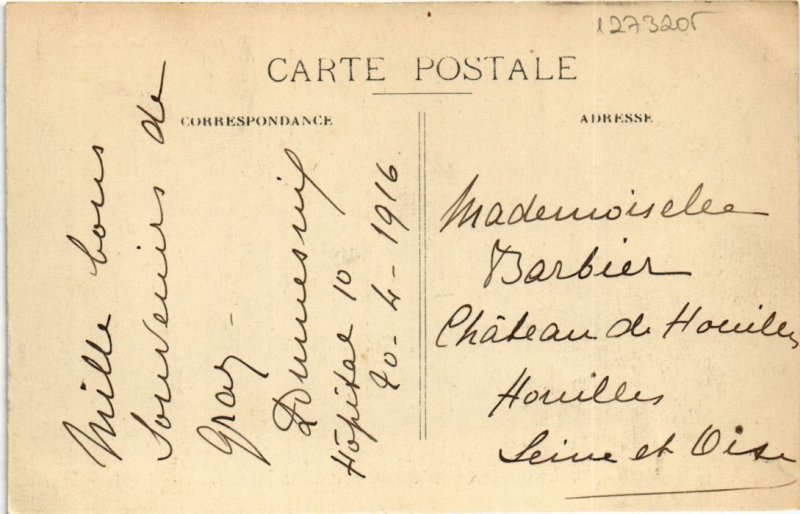 1273205
CARTE POSTALE
CORRESPONDANCE
ADRESSE
Mille bons
Souvenirs de
Gray -
Dumesnil
Hôpital 10
20-4-1916
Mademoiselle
Barbier
Château de Houilles
Houilles
Seine et Oise